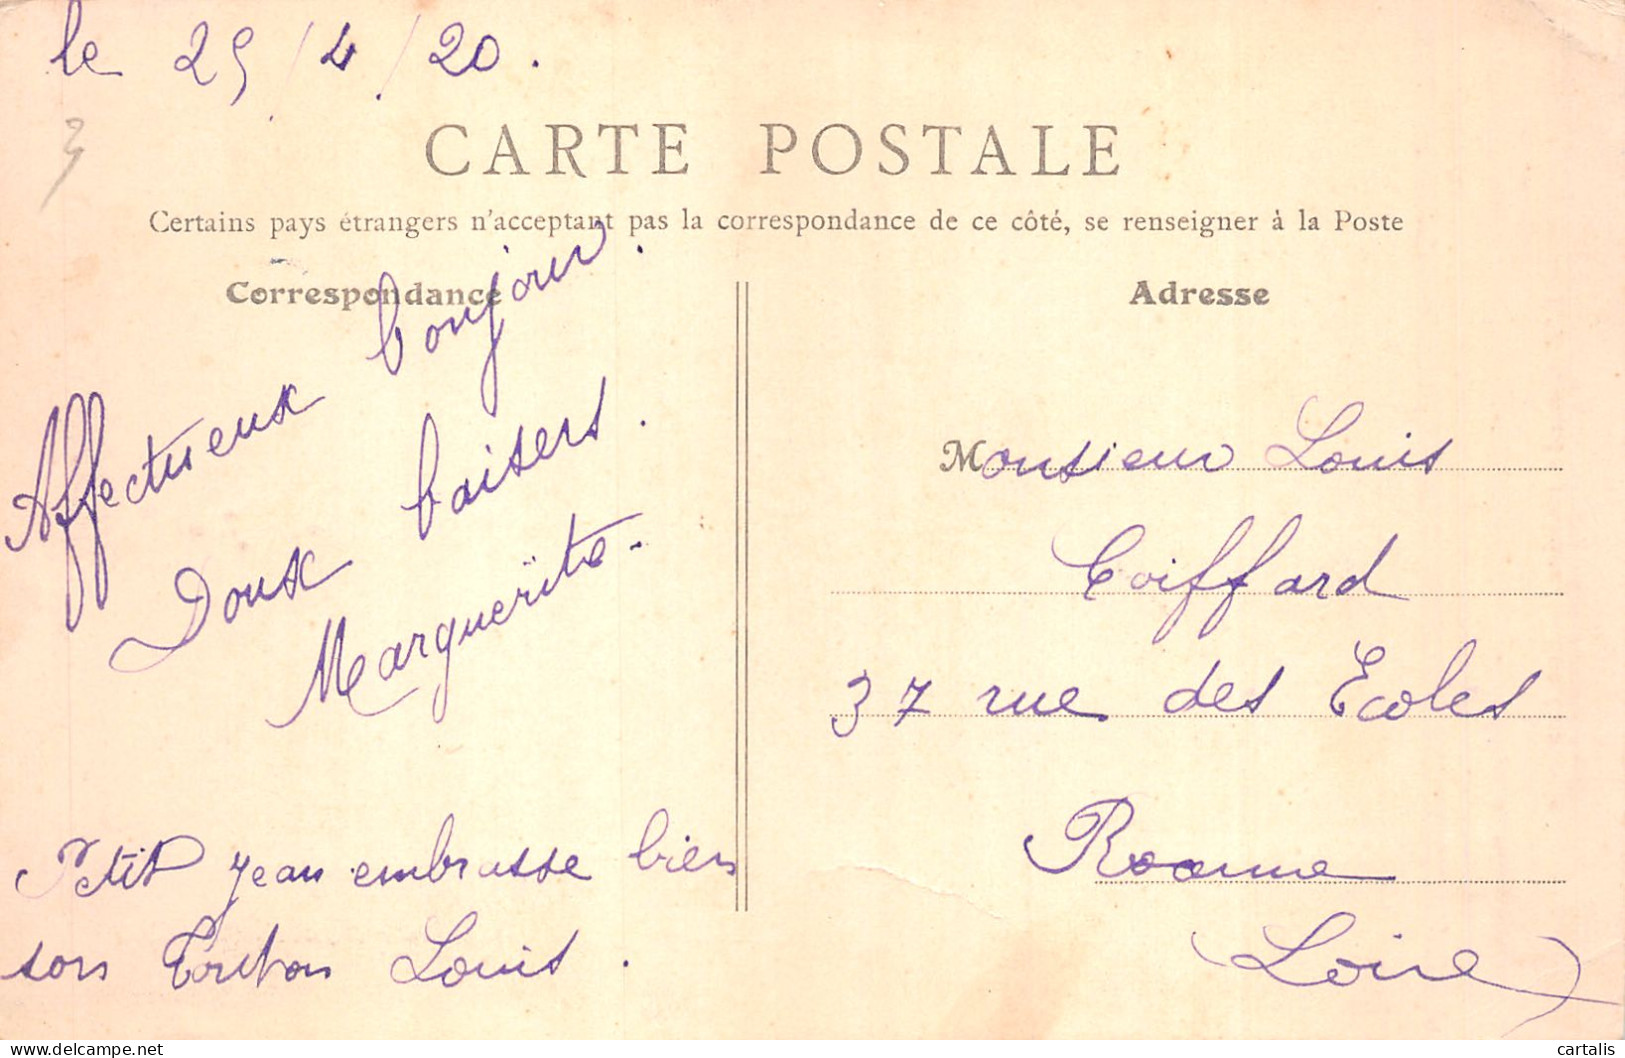 le 25/4/20.
3
CARTE POSTALE
Certains pays étrangers n'acceptant pas la correspondance de ce côté, se renseigner à la Poste
Correspondance
Affectueux bonjour.
Doux baisers.
Marguerite.
Petit Jean embrasse bien
son Tonton Louis.
Adresse
Monsieur Louis
Coiffard
37 rue des Ecoles
Roanne
(Loire)
cartalis